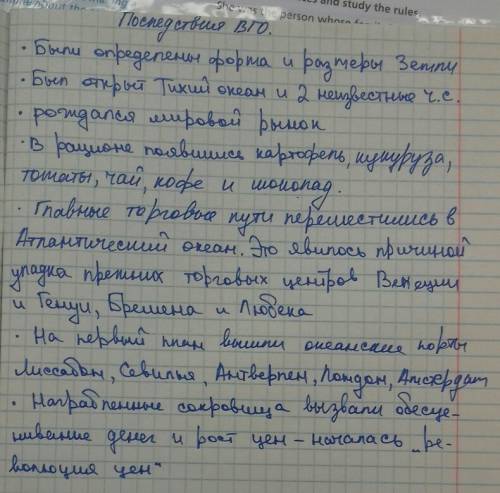 She was the person whose
and study the rules
Последствия ВГО.
· Были определены форма и размеры Земли
· Был открыт Тихий океан и 2 неизвестные ч.с.
· рождался мировой рынок
· В рационе появились картофель, кукуруза,
томаты, чай, кофе и шоколад.
· Главные торговые пути переместились в
Атлантический океан. Это явилось причиной
упадка прежних торговых центров Венеции
и Генуи, Бремена и Любека
· На первый план вышли океанские порты
Лиссабон, Севилья, Антверпен, Лондон, Амстердам
· Награбленные сокровища вызвали обесце-
нивание денег и рост цен – началась „ре-
волюция цен"